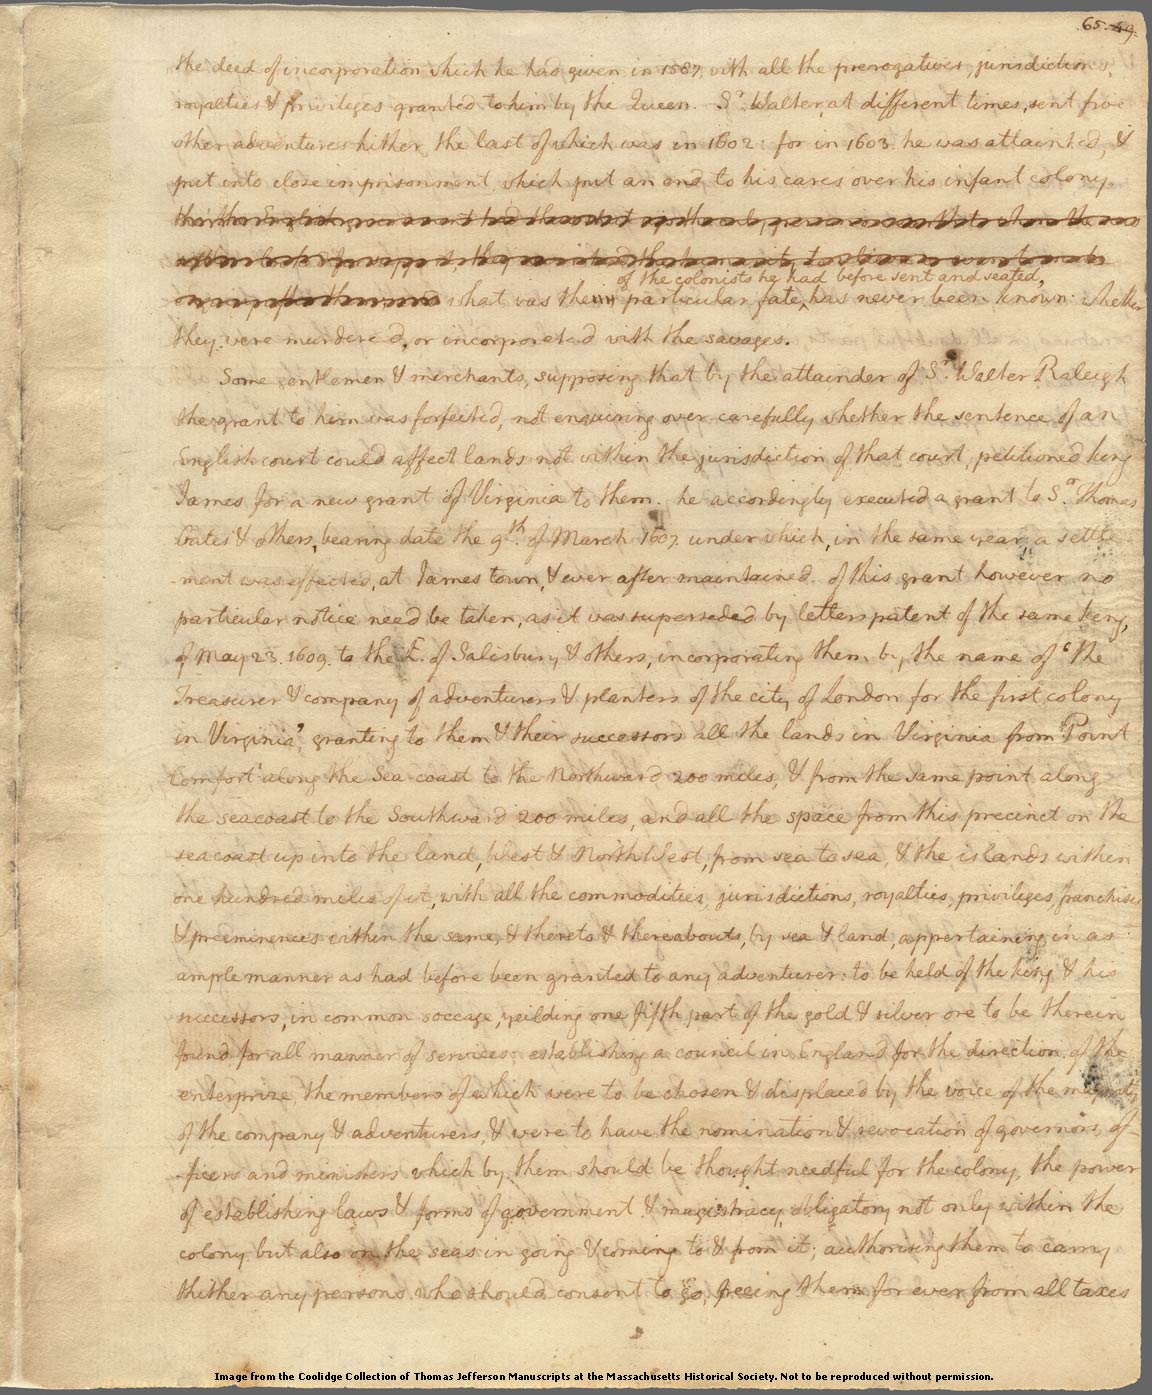 65. 49.
the deed of incorporation which he had given in 1587, with all the prerogatives, jurisdictions,
royalties & privileges granted to him by the Queen. Sr. Walter, at different times, sent five
other adventures hither, the last of which was in 1602: for in 1603. he was attainted, &
put into close imprisonment, which put an end to his cares over his infant colony.
of the colonists he had before sent and seated,
what was the particular fate, has never been known: whether
they were murdered, or incorporated with the savages.
Some gentlemen & merchants, supposing that by the attainder of Sr. Walter Raleigh
the grant to him was forfeited, not enquiring over carefully whether the sentence of an
English court could affect lands not within the jurisdiction of that court, petitioned king
James for a new grant of Virginia to them. he accordingly executed a grant to Sr. Thomas
Gates & others, bearing date the 9th. of March 1607. under which, in the same year, a settle-
-ment was effected, at James town, & ever after maintained. of this grant however no
particular notice need be taken, as it was superseded by letters patent of the same king,
of May 23. 1609. to the E. of Salisbury & others, incorporating them by the name of 'the
Treasurer & company of adventurers & planters of the city of London for the first colony
in Virginia', granting to them & their successors all the lands in Virginia from 'Point
Comfort' along the Sea coast to the Northward 200 miles, & from the same point along
the seacoast to the Southward 200 miles, and all the space from this precinct on the
seacoast up into the land, West & North West, from sea to sea, & the islands within
one hundred miles of it, with all the commodities, jurisdictions, royalties, privileges, franchises
& preeminences within the same, & thereto & thereabouts, by sea & land, appertaining, in as
ample manner as had before been granted to any adventurer: to be held of the king & his
successors, in common soccage, yeilding one fifth part of the gold & silver ore to be therein
found, for all manner of services; establishing a council in England for the direction of the
enterprize, the members of which were to be chosen & displaced by the voice of the majority
of the company & adventurers, & were to have the nomination & revocation of governors, of-
-ficers and ministers which by them should be thought needful for the colony, the power
of establishing laws & forms of government & magistracy, obligatory not only within the
colony, but also on the seas in going & coming to & from it; authorising them to carry
thither any persons who should consent to go, freeing them for ever from all taxes
Image from the Coolidge Collection of Thomas Jefferson Manuscripts at the Massachusetts Historical Society. Not to be reproduced without permission.